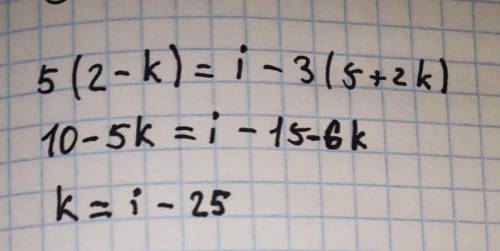 5(2-k) = i - 3(5+2k)
10-5k = i - 15-6k
k = i - 25